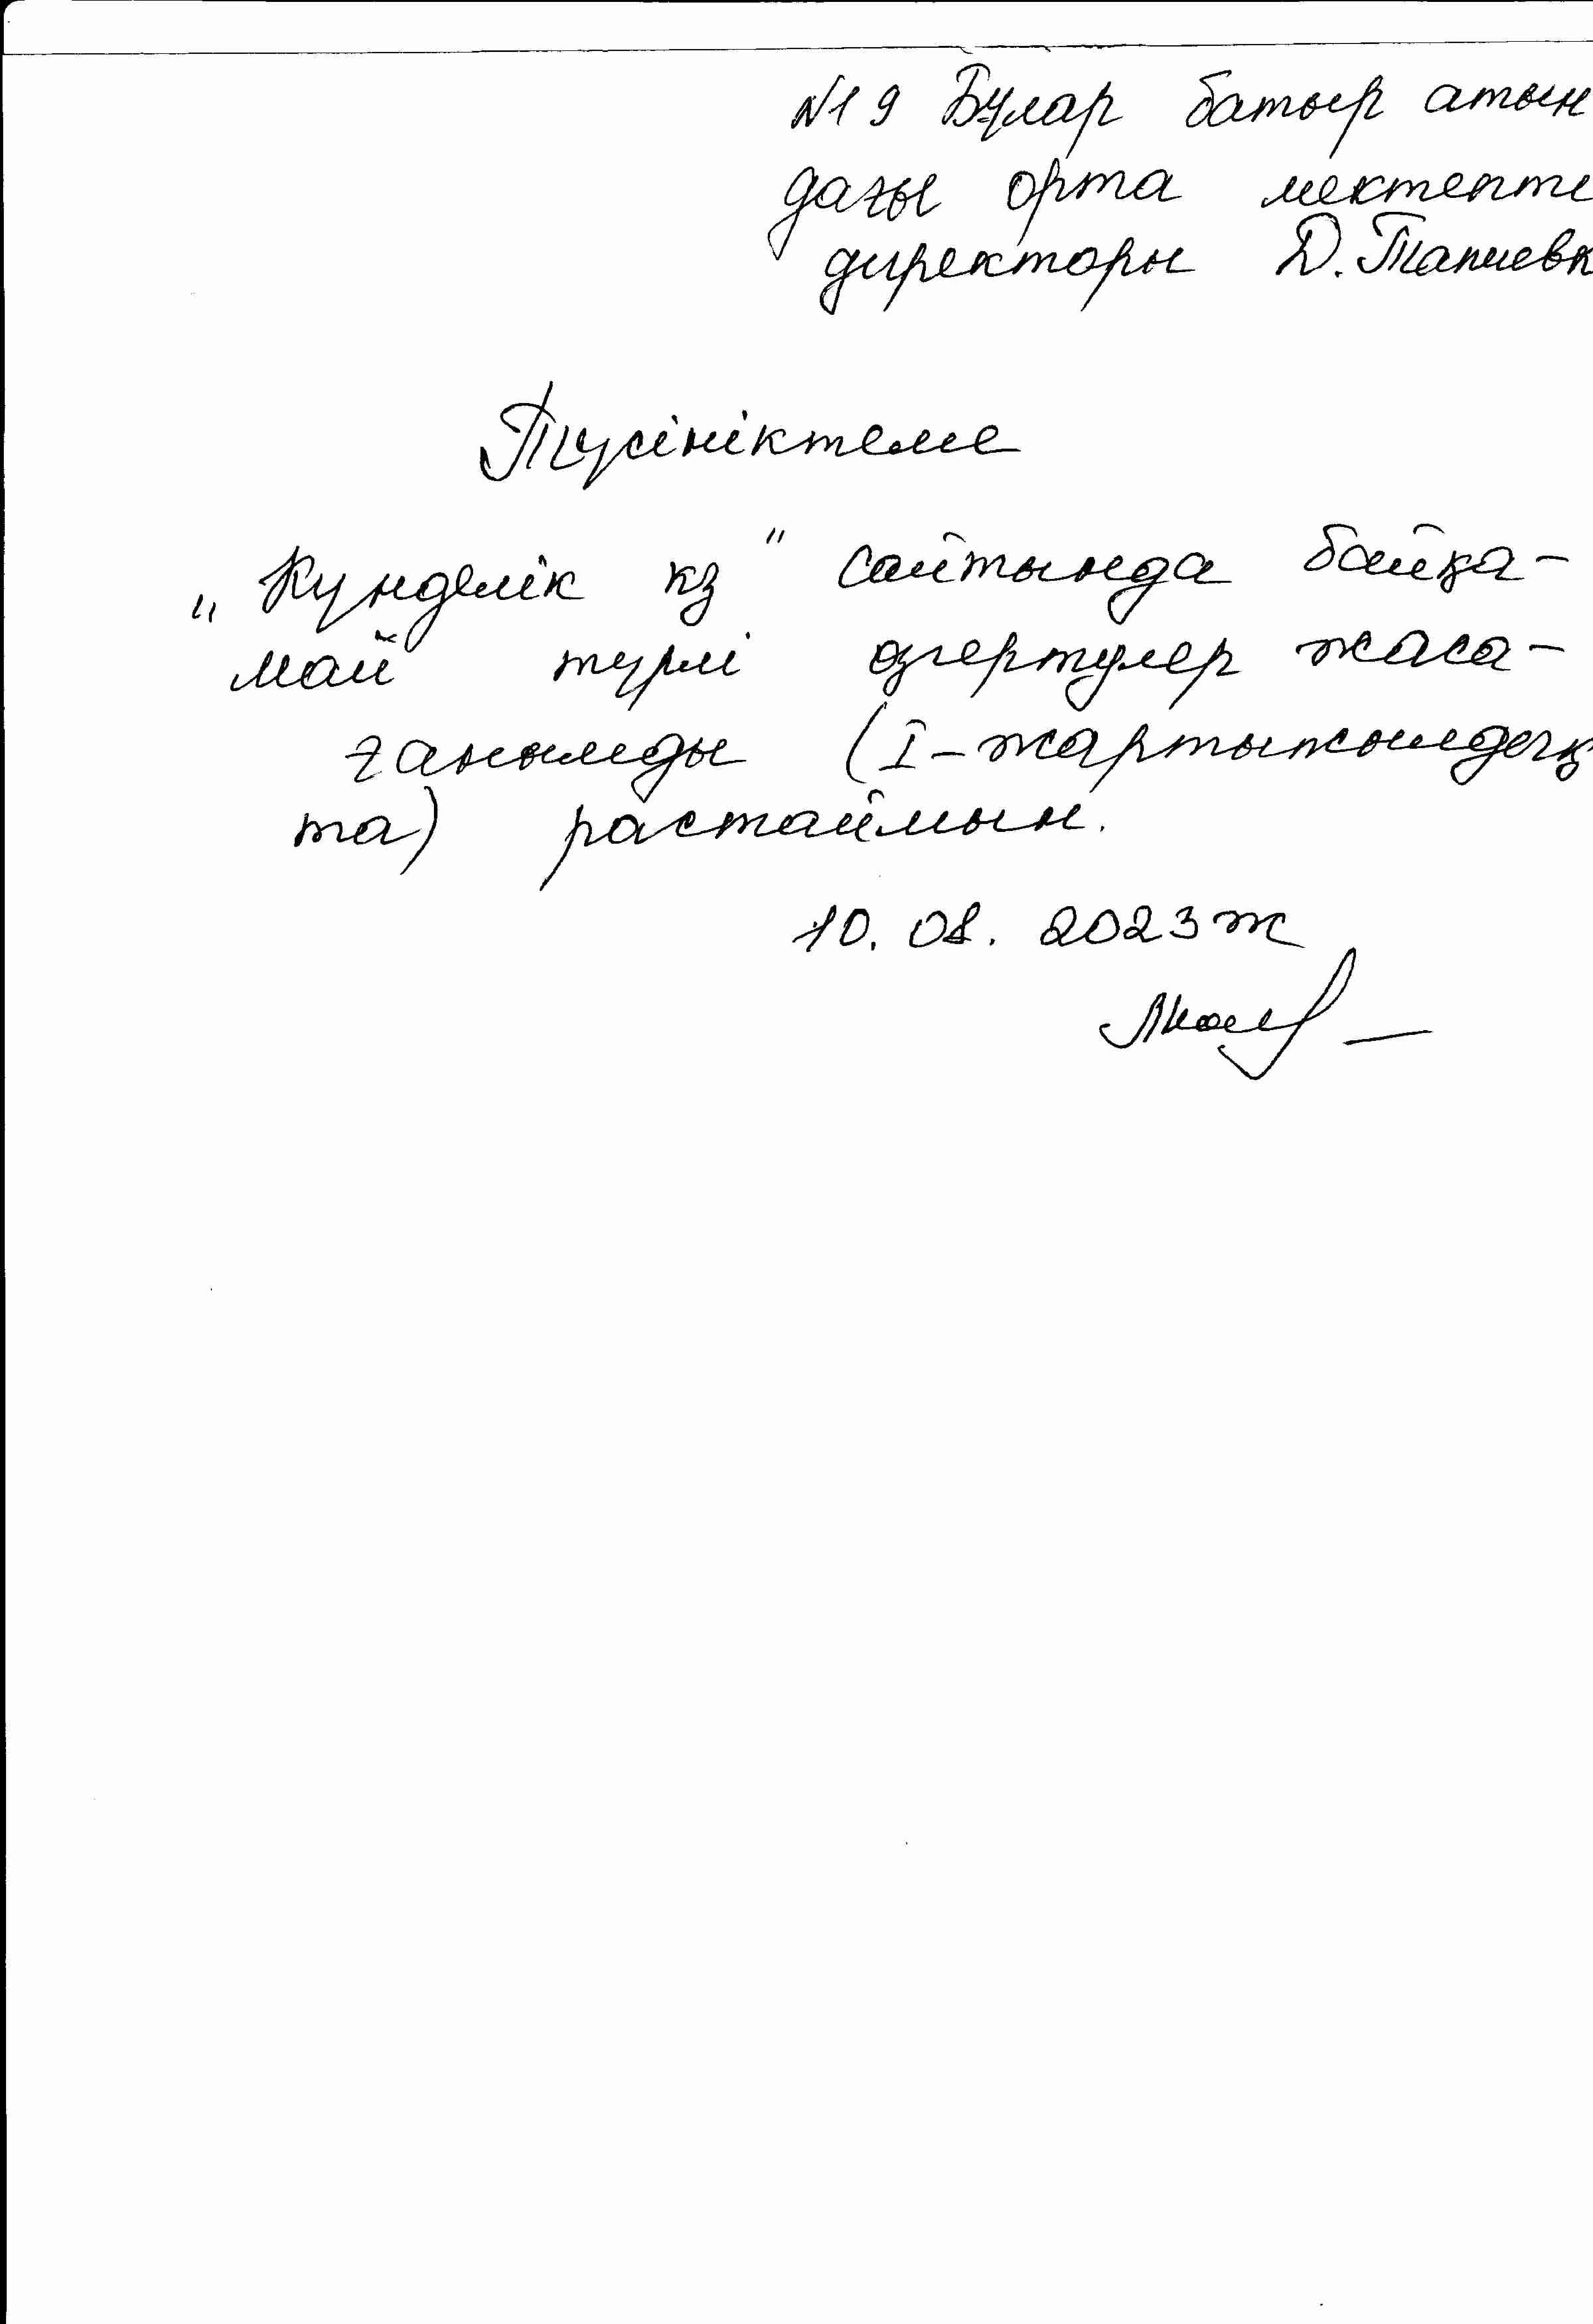 №19 Бұлар батыр атын
дағы орта мектепте
директоры Д. Тапиевк
Түсініктеме
„Күнделік кз" сайтында байқа-
май түрлі өзгертулер жаса-
ғанымды (I-жартыжылдық
та) растаймын.
10. 08. 2023 ж